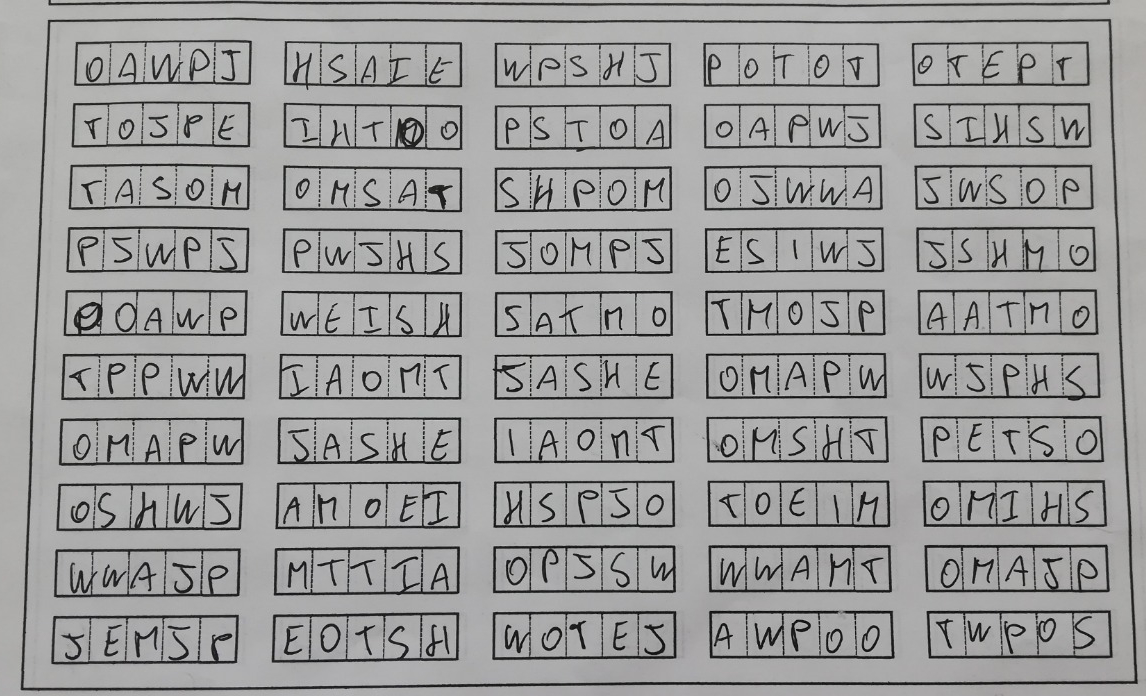 OAWPJ HSAIE WPSHJ POTOT OTEPT
TOJPE IHTOO PSTOA OAPWJ SIHSW
TASOM OMSAT SHPOM OJWWA JWSOP
PJWPJ PWJHS JOMPJ ESIWJ JSHMO
OOAWP WEISH SATMO TMOJP AATMO
TPPWW IAOMT JASHE OMAPW WJPHS
OMAPW JASHE IAOMT OMSHT PETSO
OSHWJ AMOEI HSPJO TOEIM OMIHS
WWAJP MTTIA OPJSW WWAMT OMAJP
JEMJP EOTSH WOTEJ AWPOO TWPOS